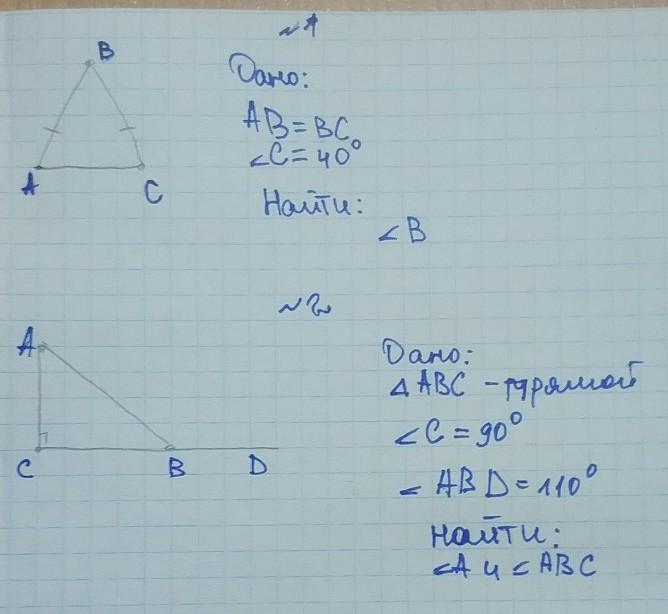 №1
B
Дано:
AB=BC
∠C=40°
A
C
Найти:
∠B
№2
A
Дано:
△ABC - прямой
∠C=90°
C
B
D
∠ABD=110°
Найти:
∠A и ∠ABC